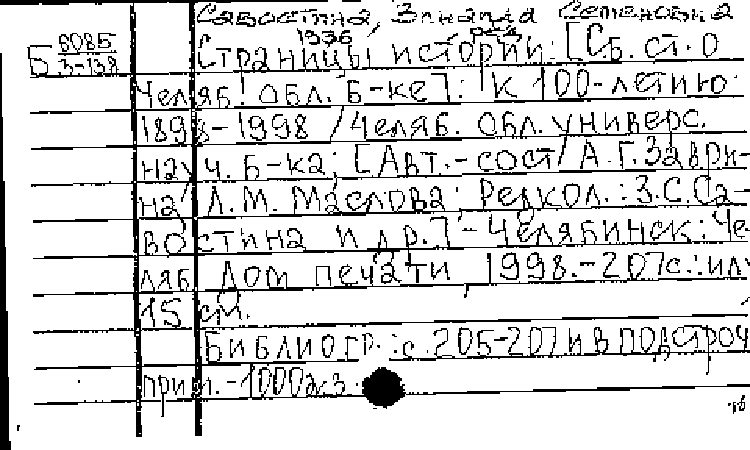 Савостина, Зинаида Семеновна
1936
Б 6085 3-139
Страницы истории: [Сб. ст. о
Челяб. обл. б-ке]: К 100-летию:
1898-1998 / Челяб. обл. универс.
науч. б-ка; [Авт.-сост. А.Г. Заври-
на, Л.М. Маслова; Редкол.: З.С. Са-
востина и др.] - Челябинск: Че-
ляб. Дом печати, 1998. - 207 с.: ил;
15 см.
Библиогр.: с. 205-207 и в подстроч.
прим. - 1000 экз.